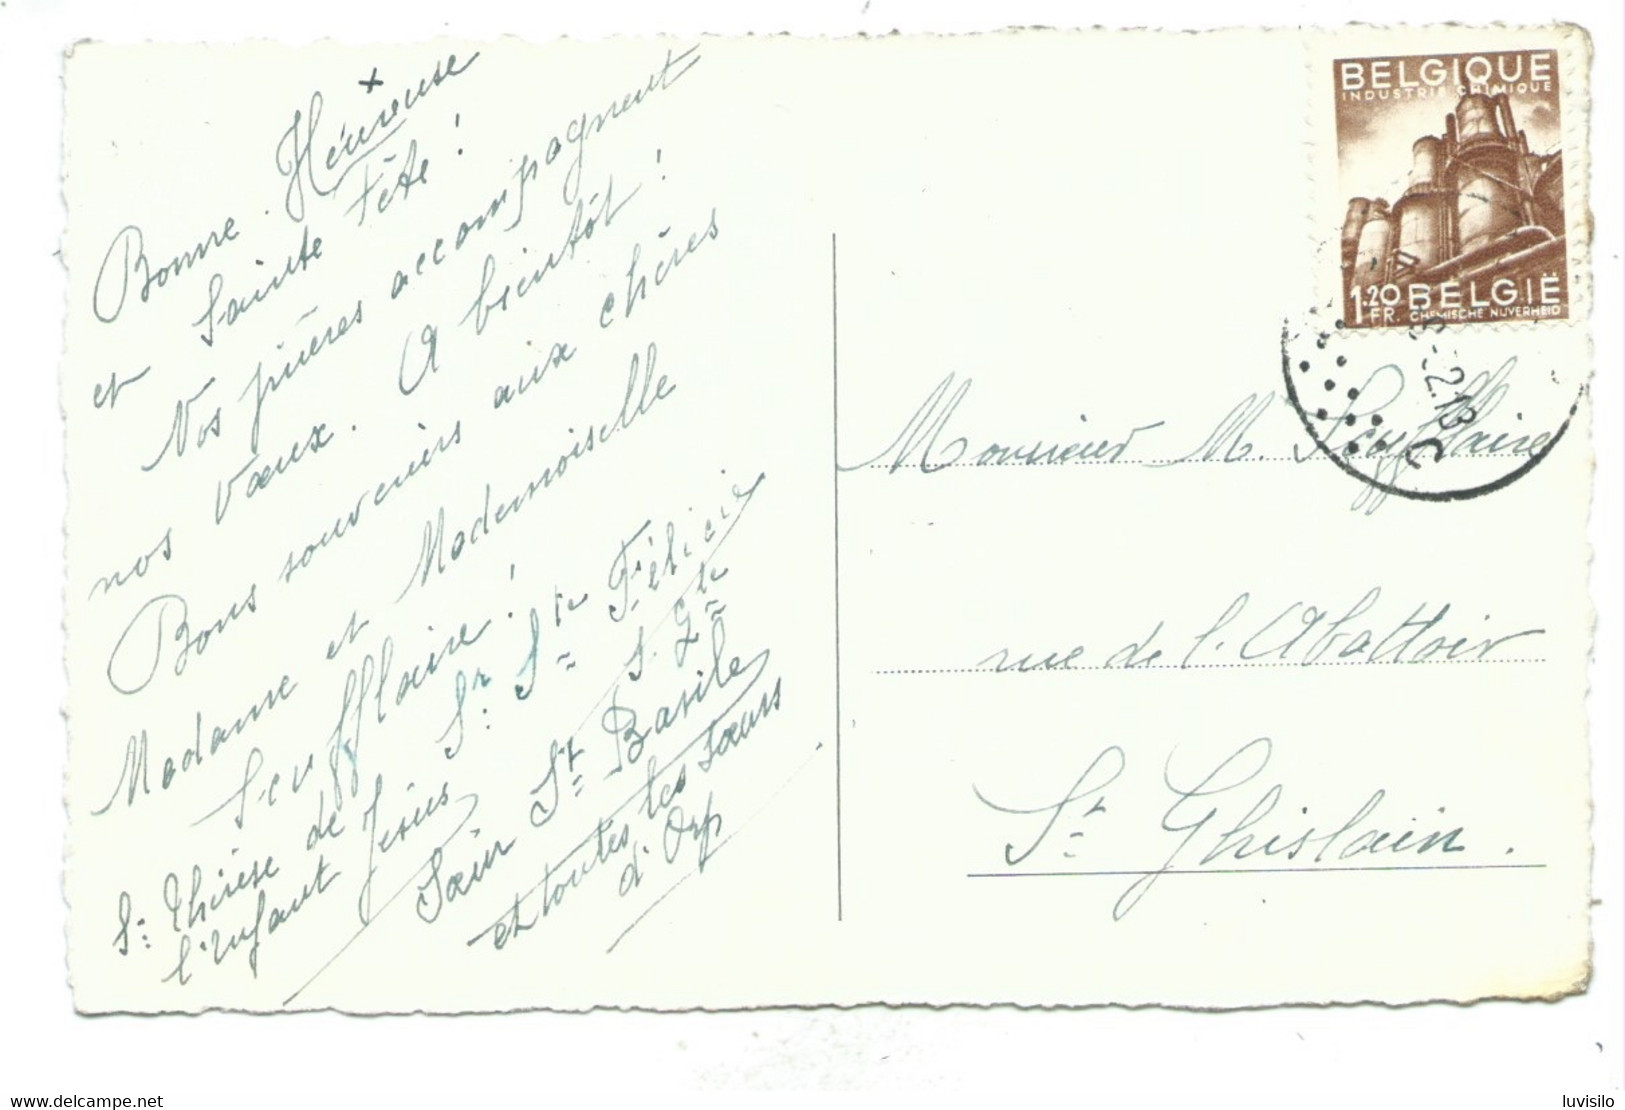 +
Bonne. Heureuse
et Sainte Fête!
Nos prières accompagnent
nos vœux. A bientôt!
Bons souvenirs aux chères
Madame et Mademoiselle
Seufflaire!
Sr Ste Félicie
S:
Sr Thérèse de
l'Enfant Jésus
Sœur St Basile
et toutes les sœurs
d'Orp
BELGIQUE
INDUSTRIE CHIMIQUE
1.20 BELGIË
FR. CHEMISCHE NIJVERHEID
Monsieur M. Seufflaire
rue de l'Abattoir
St Ghislain.
luvisilo